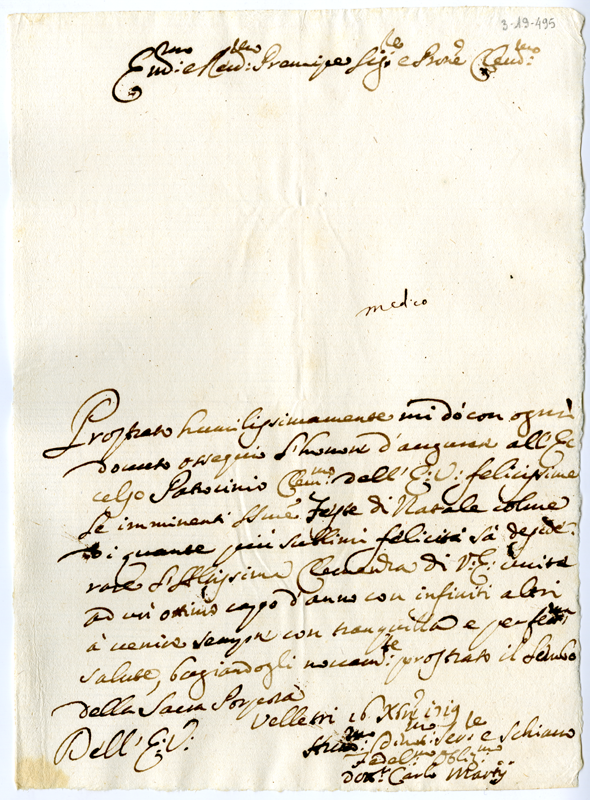 3-19-495
Em:mo e Reu:mo Prencipe Sig:re e Prone Clem:mo
medico
Prostrato humilissimamente mi dò con ogni
douuto ossequio l'honore d'augurare all'Ec
celso Patrocinio Clem:mo dell'E:V: felicissime
le imminenti SSme Feste di Natale colme
di quante più sublimi felicità sà deside:
rare l'Altissima Clemenza di V:E: unite
ad un ottimo capo d'anno con infiniti altri
à uenire sempre con tranquillà e perfetta
salute, baciandogli nouam:te prostrato il Lembo
della Sacra Porpora
Dell'E:V:
Velletri 16 Xbre 1719
Deuo:mo Seru:e e Schiauo
Fedel:mo Oblig:mo
Carlo